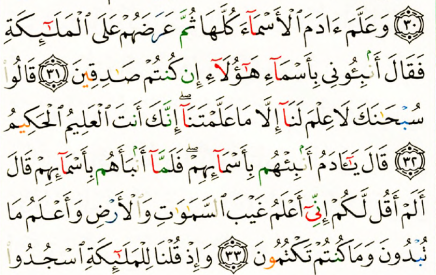 ٣٠ وَعَلَّمَ ءَادَمَ ٱلْأَسْمَآءَ كُلَّهَا ثُمَّ عَرَضَهُمْ عَلَى ٱلْمَلَـٰٓئِكَةِ
فَقَالَ أَنۢبِـُٔونِى بِأَسْمَآءِ هَـٰٓؤُلَآءِ إِن كُنتُمْ صَـٰدِقِينَ ٣١ قَالُوا۟
سُبْحَـٰنَكَ لَا عِلْمَ لَنَآ إِلَّا مَا عَلَّمْتَنَآ ۖ إِنَّكَ أَنتَ ٱلْعَلِيمُ ٱلْحَكِيمُ
٣٢ قَالَ يَـٰٓـَٔادَمُ أَنۢبِئْهُم بِأَسْمَآئِهِمْ ۖ فَلَمَّآ أَنۢبَأَهُم بِأَسْمَآئِهِمْ قَالَ
أَلَمْ أَقُل لَّكُمْ إِنِّىٓ أَعْلَمُ غَيْبَ ٱلسَّمَـٰوَٰتِ وَٱلْأَرْضِ وَأَعْلَمُ مَا
تُبْدُونَ وَمَا كُنتُمْ تَكْتُمُونَ ٣٣ وَإِذْ قُلْنَا لِلْمَلَـٰٓئِكَةِ ٱسْجُدُوا۟